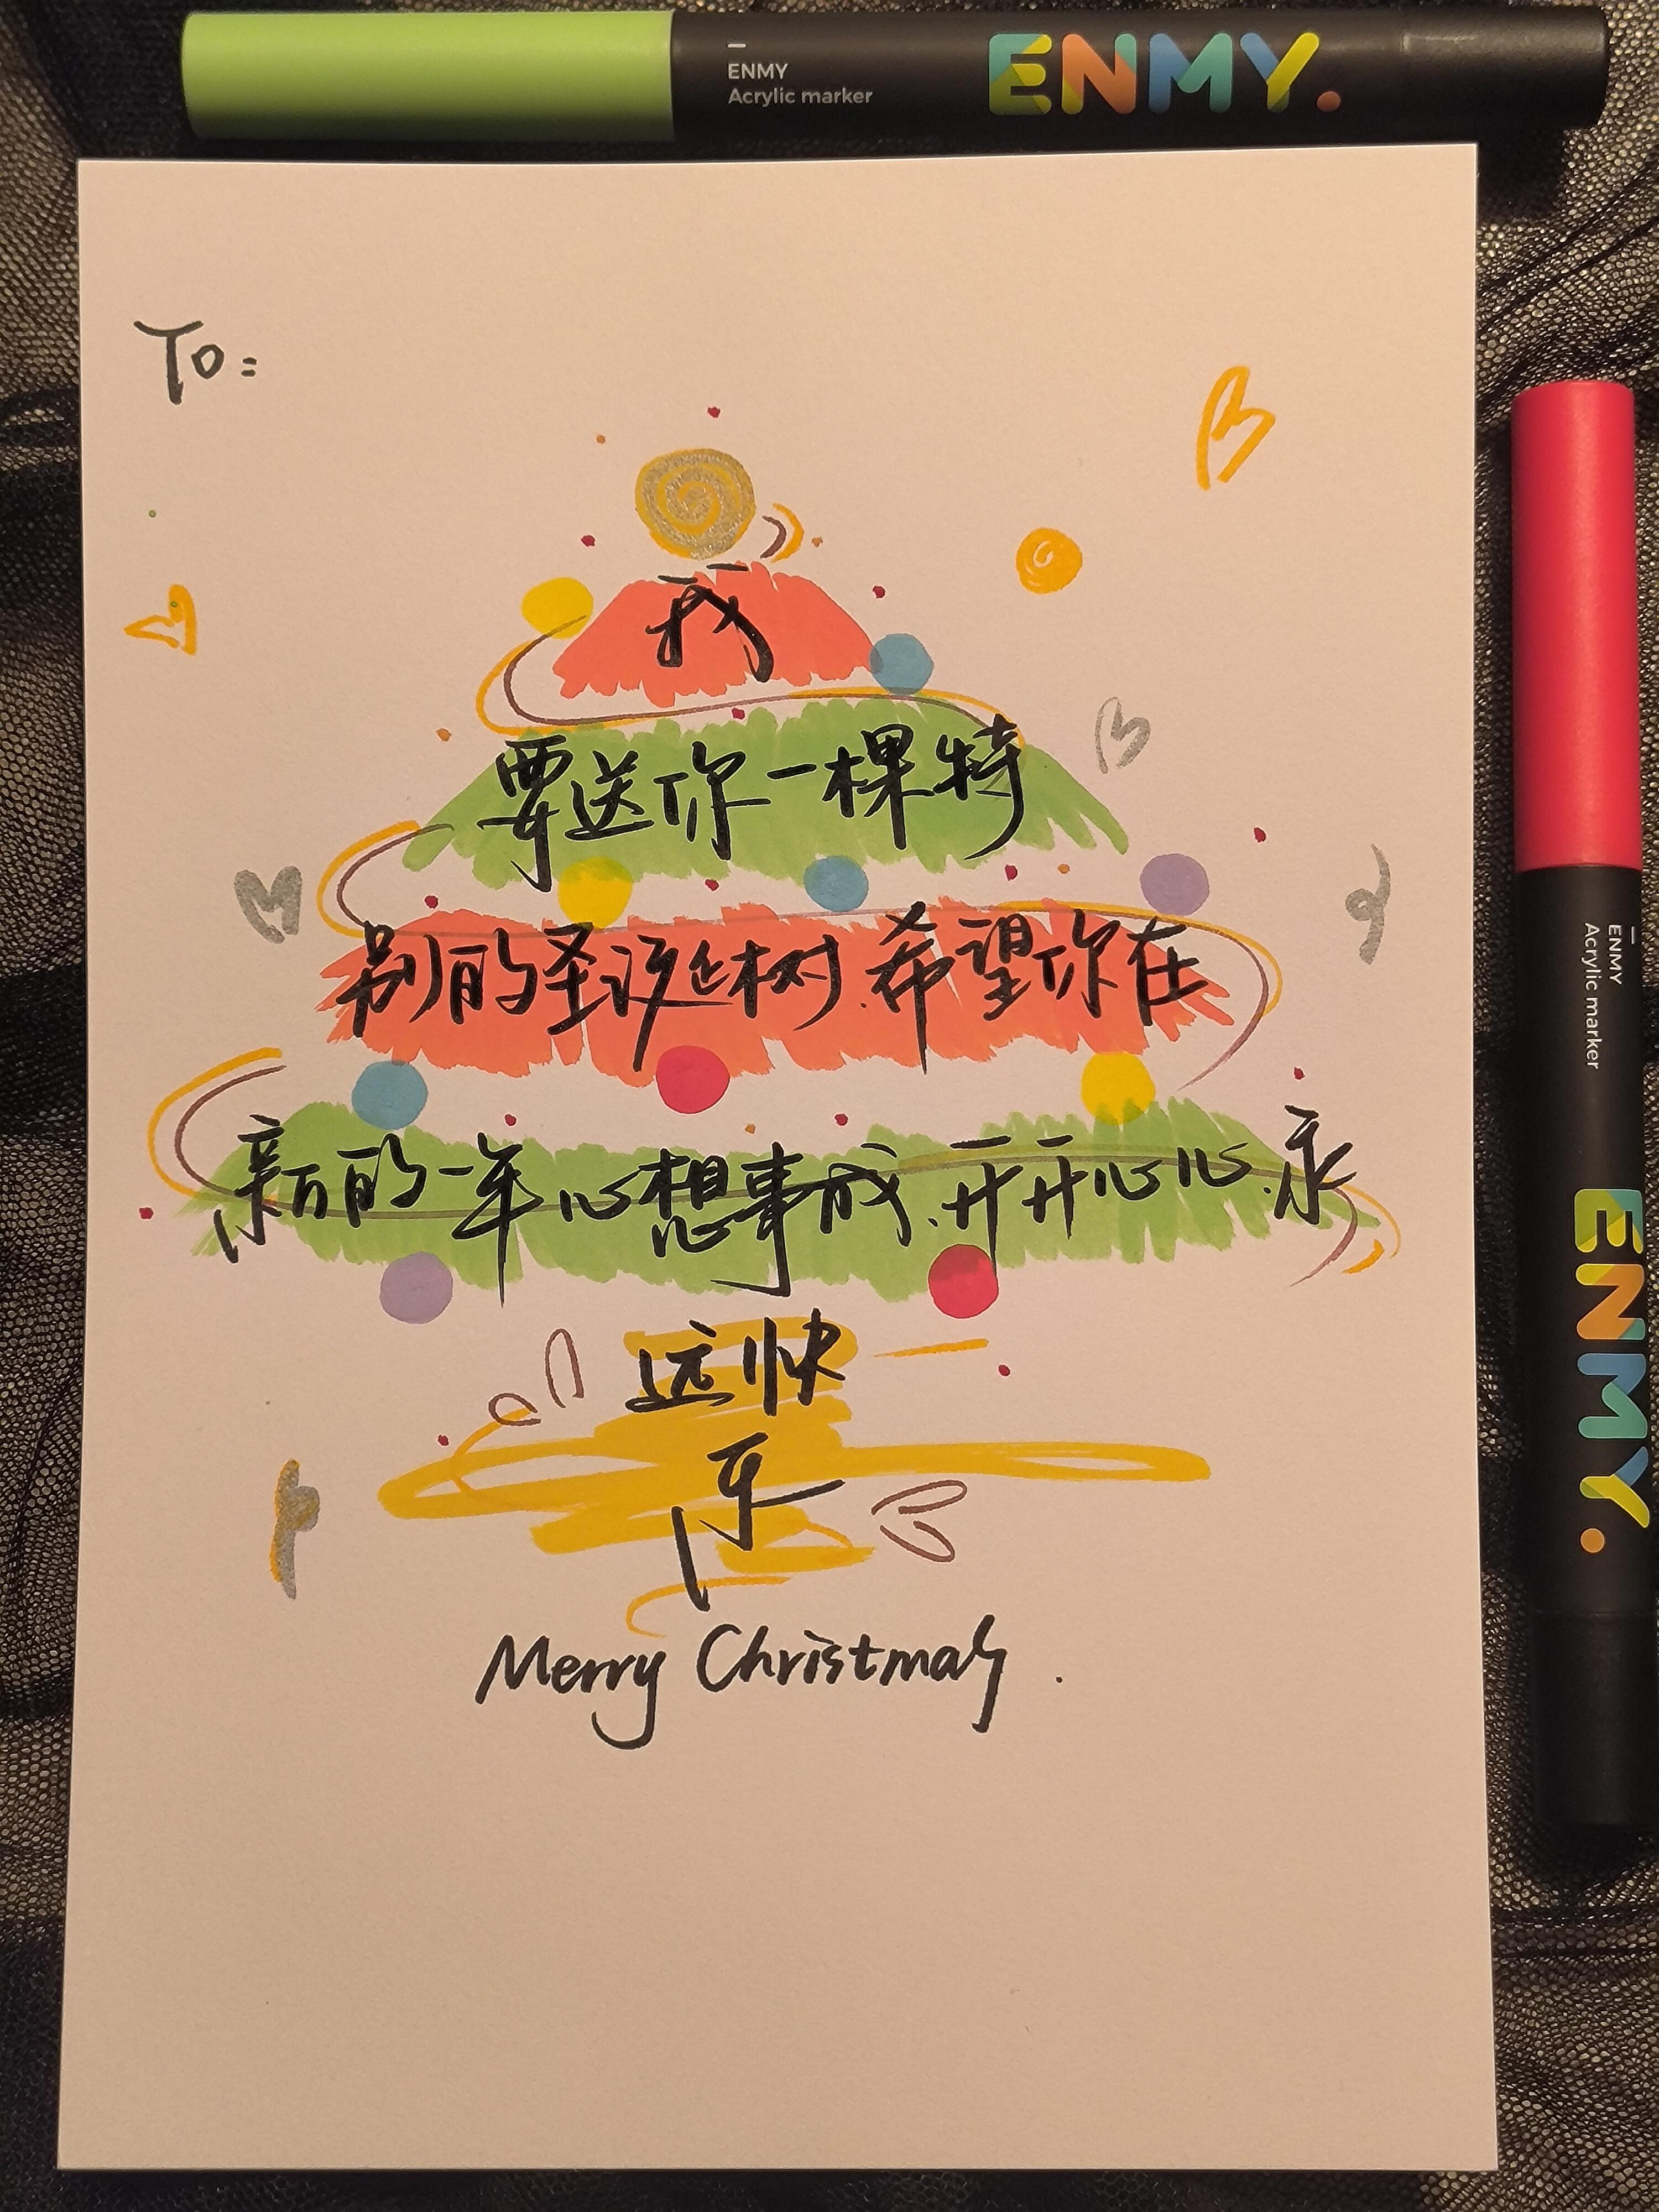 ENMY
Acrylic marker
ENMY.
To:
我
要送你一棵特
别的圣诞树.希望你在
新的一年心想事成.开开心心.永
远快
乐
Merry Christmas.
ENMY
Acrylic marker
ENMY.